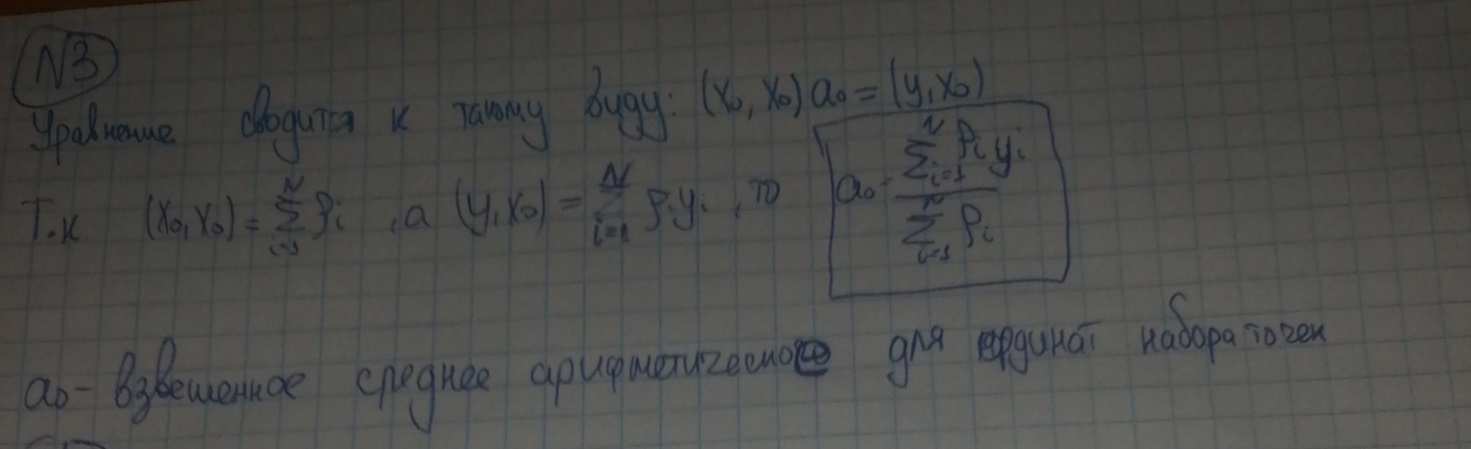 N3
Уравнение сводится к такому виду: (x₀, x₀)a₀ = (y, x₀)
Т.к (x₀, x₀) = ∑_{i=1}^{N} ρᵢ , а (y, x₀) = ∑_{i=1}^{N} ρᵢyᵢ , то a₀ = \frac{∑_{i=1}^{N} ρᵢ yᵢ}{∑_{i=1}^{N} ρᵢ}
a₀ - взвешенное среднее арифметическое для ординат набора точек